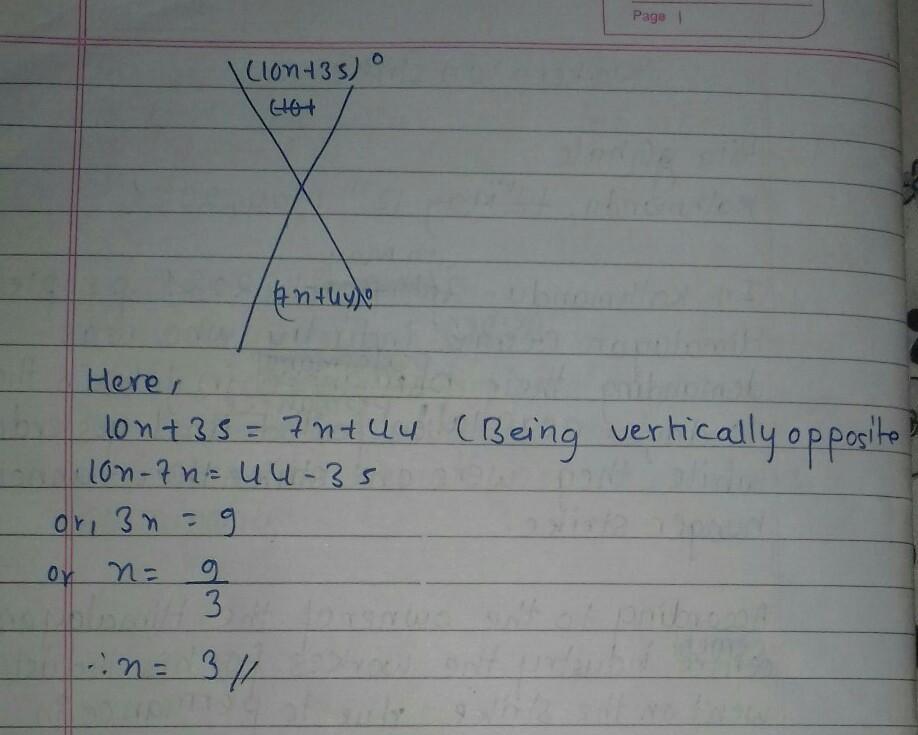 Page 1
(10x+35)°
(10+
(7x+44)°
Here,
10x+35 = 7x+44 (Being vertically opposite
10x-7x= 44-35
or, 3x = 9
or x= 9/3
∴ x= 3//